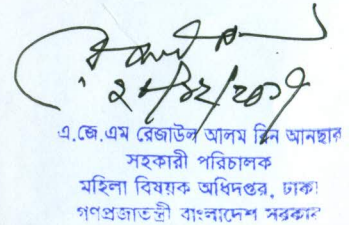 এ.জে.এম রেজাউল আলম বিন আনছার
সহকারী পরিচালক
মহিলা বিষয়ক অধিদপ্তর, ঢাকা
গণপ্রজাতন্ত্রী বাংলাদেশ সরকার